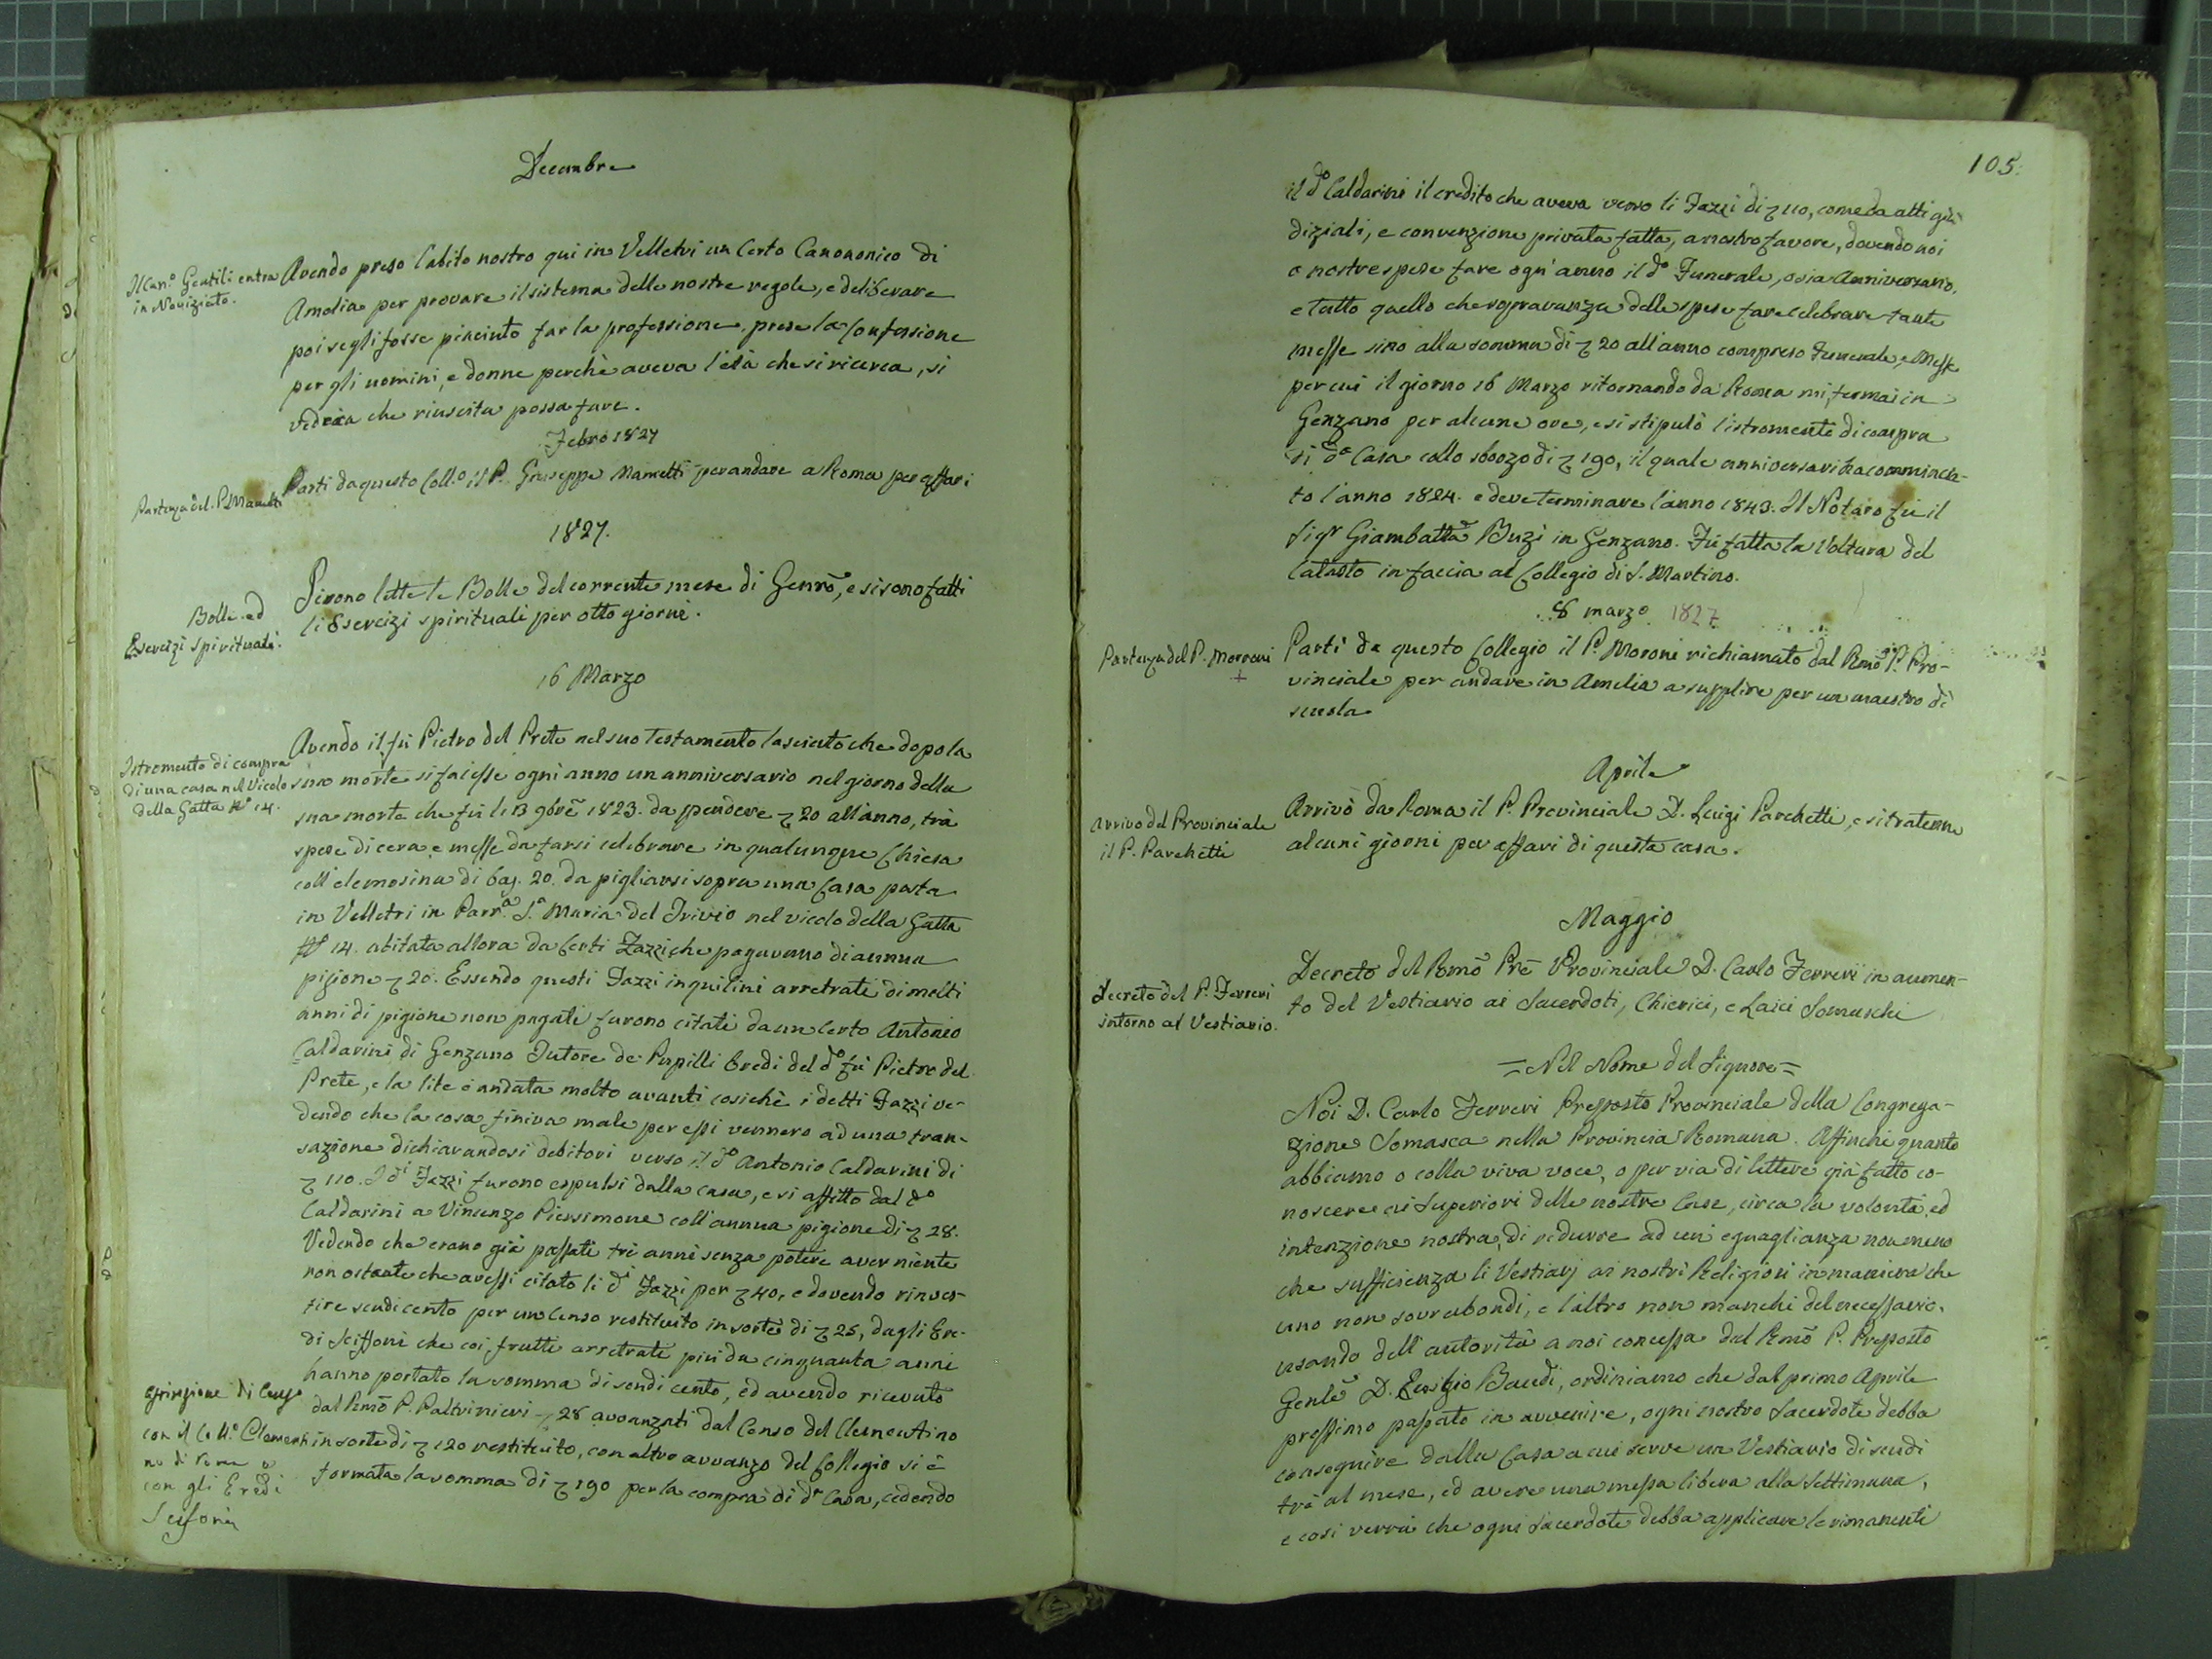 Decembre
Il Can.º Gentili entra
in Noviziato.
Avendo preso l'abito nostro qui in Velletri un Certo Canononico di
Amelia per provare il sistema delle nostre regole, e deliberare
poi se gli fosse piaciuto far la professione, prese la Confessione
per gli uomini, e donne perchè aveva l'età che si ricerca, si
vedrà che riuscita possa fare.
Febro 1827
Partenza del P. Mametti
Parti da questo Coll.º il P. Giuseppe Mametti per andare a Roma per affari
1827.
Bolle ed
Esercizi Spirituali.
Si sono lette le Bolle del corrente mese di Genrõ, e si sono fatti
li Esercizi spirituali per otto giorni.
16 Marzo
Istromento di compra
di una casa nel Vicolo
della Gatta Nº 14.
Avendo il fù Pietro del Prete nel suo Testamento lasciato che dopo la
sua morte si facesse ogni anno un anniversario nel giorno della
sua morte che fù li 13 9brẽ 1823. da spendere 20 all'anno, trà
spese di cera e messe da farsi celebrare in qualunque Chiesa
coll'elemosina di baj. 20. da pigliarsi sopra una Casa posta
in Velletri in Parr.ª S.ª Maria del Trivio nel vicolo della Gatta
Nº 14. abitata allora da Certi Fazzi che pagavano di annua
pigione 20. Essendo questi Fazzi inquilini arretrati di molti
anni di pigione non pagati furono citati da un Certo Antonio
Caldarini di Genzano Tutore de Pupilli Eredi del dº fù Pietro del
Prete, e la lite è andata molto avanti cosichè i detti Fazzi ve-
dendo che la cosa finiva male per essi vennero ad una tran-
sazione dichiarandosi debitori verso il dº Antonio Caldarini di
110. I di Fazzi furono espulsi dalla casa, e si affittò dal dº
Caldarini a Vincenzo Piersimone coll'annua pigione di 28.
Vedendo che erano già passati tre anni senza potere aver niente
non ostante che avessi citato li di Fazzi per 40, e dovendo rinves-
tire scudi cento per un Censo restituito in sorte di 25, dagli Ere-
di Sciffoni che coi frutti arretrati più da cinquanta anni
hanno portato la somma di scudi cento, ed avendo ricevuto
dal Rmõ P. Paltrinieri 28 avvanzati dal Censo del Clementino
in sorte di 120 restituito, con altro avvanzo del Collegio si è
formata la somma di 190 per la compra di dª Casa, cedendo
con il Coll.º Clementi
no di Roma e
con gli Eredi
105.
il dº Caldarini il credito che aveva verso li Fazzi di 110, come da atti giu-
diziali, e convenzione privata fatta, a nostro favore, dovendo noi
a nostre spese fare ogn'anno il dº Funerale, o sia Anniversario,
e tutto quello che sopravanza delle spese fare celebrare tante
messe sino alla somma di 20 all'anno compreso Funerale, e Messe
per cui il giorno 16 Marzo ritornando da Roma mi fermai in
Genzano per alcune ore, e si stipulò l'istromento di compra
di dª Casa collo sborzo di 190, il quale anniversario ha comincia-
to l'anno 1824. e deve terminare l'anno 1843. Il Notaro fù il
Sigr Giambattã Buzi in Genzano. Fù fatta la Voltura del
Catasto in faccia al Collegio di S. Martino.
8 marzo 1827
Partenza del P. Moroni
+
Partì da questo Collegio il P. Moroni richiamato dal Rmõ P. Pro-
vinciale per andare in Amelia a supplire per un maestro di
scuola.
Aprile
Arrivo del Provinciale
il P. Parchetti
Arrivò da Roma il P. Provinciale D. Luigi Parchetti, e si trattenne
alcuni giorni per affari di questa casa.
Maggio
Decreto del P. Ferreri
intorno al Vestiario.
Decreto del Rmõ Prẽ Provinciale D. Carlo Ferreri in aumen-
to del Vestiario ai Sacerdoti, Chierici, e Laici Somaschi
= Nel Nome del Signore =
Noi D. Carlo Ferreri Preposto Provinciale della Congrega-
zione Somasca nella Provincia Romana. Affinchè quanto
abbiamo o colla viva voce, o per via di lettere già fatto co-
noscere ai Superiori delle nostre Case, circa la volontà, ed
intenzione nostra, di ridurre ad un eguaglianza non meno
che sufficienza li Vestiarj ai nostri Religiosi in maniera che
uno non sovrabondi, e l'altro non manchi del necessario,
usando dell'autorità a noi concessa dal Rmõ P. Preposto
Genlẽ D. Emigio Baudi, ordiniamo che dal primo Aprile
prossimo passato in avvenire, ogni nostro Sacerdote debba
conseguire dalla Casa a cui serve un Vestiario di scudi
tre al mese, ed avere una messa libera alla Settimana,
e così verrà che ogni Sacerdote debba applicare le rimanenti